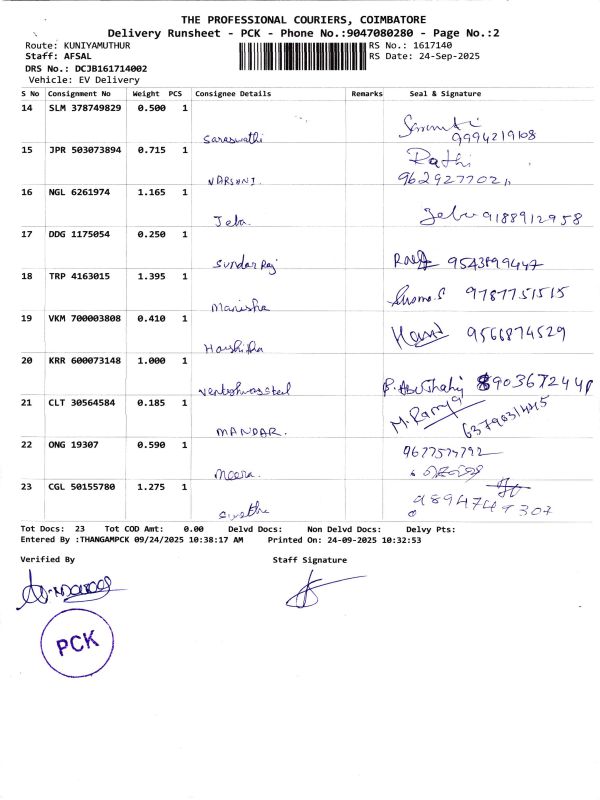 THE PROFESSIONAL COURIERS, COIMBATORE
Delivery Runsheet - PCK - Phone No.:9047080280 - Page No.:2
Route: KUNIYAMUTHUR RS No.: 1617140
Staff: AFSAL RS Date: 24-Sep-2025
DRS No.: DCJB161714002
Vehicle: EV Delivery
S No Consignment No Weight PCS Consignee Details Remarks Seal & Signature
14 SLM 378749829 0.500 1
Saraswathi 9994219108
15 JPR 503073894 0.715 1 Rathi
VARSHNI.
16 NGL 6261974 1.165 1
Jeba. Jeba 9188912958
17 DDG 1175054 0.250 1
Sundar Raj 9543899447
18 TRP 4163015 1.395 1
Manisha 9787751515
19 VKM 700003808 0.410 1
Harshitha 9566874529
20 KRR 600073148 1.000 1
21 CLT 30564584 0.185 1 M. Ramya
MANDAR.
22 ONG 19307 0.590 1
Meera.
23 CGL 50155780 1.275 1
Tot Docs: 23 Tot COD Amt: 0.00 Delvd Docs: Non Delvd Docs: Delvy Pts:
Entered By :THANGAMPCK 09/24/2025 10:38:17 AM Printed On: 24-09-2025 10:32:53
Verified By Staff Signature
PCK